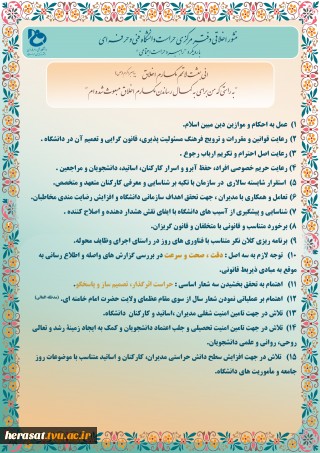 منشور اخلاقی دفتر مرکزی حراست دانشگاه فنی و حرفه ای
با رویکرد "حراست اجتماعی"
انی بعثت لاتمم مکارم الاخلاق
" به راستی که من برای به کمال رساندن مکارم اخلاق مبعوث شده ام "
۱) عمل به احکام و موازین دین مبین اسلام.
۲) رعایت قوانین و مقررات و ترویج فرهنگ مسئولیت پذیری، قانون گرایی و تعمیم آن در دانشگاه .
۳) رعایت اصل احترام و تکریم ارباب رجوع .
۴) رعایت حریم خصوصی افراد، حفظ آبرو و اسرار کارکنان، اساتید، دانشجویان و مراجعین .
۵) استقرار شایسته سالاری در سازمان با تکیه بر شناسایی و معرفی کارکنان متعهد و متخصص.
۶) تعامل و همکاری با مدیران ، جهت تحقق اهداف سازمانی دانشگاه و افزایش رضایت مندی مخاطبان.
۷) شناسایی و پیشگیری از آسیب های دانشگاه با ایفای نقش هشدار دهنده و اصلاح کننده .
۸) برخورد متناسب و قانونی با متخلفان و قانون گریزان.
۹) برنامه ریزی کلان نگر متناسب با فناوری های روز در راستای اجرای وظایف محوله.
۱۰) توجه لازم به سه اصل : دقت ، صحت و سرعت در بررسی گزارش های واصله و اطلاع رسانی به
موقع به مبادی ذیربط قانونی.
۱۱) اهتمام به تحقق بخشیدن سه شعار اساسی : حراست اثرگذار، تصمیم ساز و پاسخگو.
۱۲) اهتمام بر عملیاتی نمودن شعار سال از سوی مقام عظمای ولایت حضرت امام خامنه ای.
۱۳) تلاش در جهت تامین امنیت شغلی مدیران ،اساتید و کارکنان دانشگاه.
۱۴) تلاش در جهت تامین امنیت تحصیلی و جلب اعتماد دانشجویان و کمک به ایجاد زمینۀ رشد و تعالی
روحی، روانی و علمی دانشجویان.
۱۵) تلاش در جهت افزایش سطح دانش حراستی مدیران، کارکنان و اساتید متناسب با موضوعات روز
جامعه و مأموریت های دانشگاه.
herasat.tvu.ac.ir